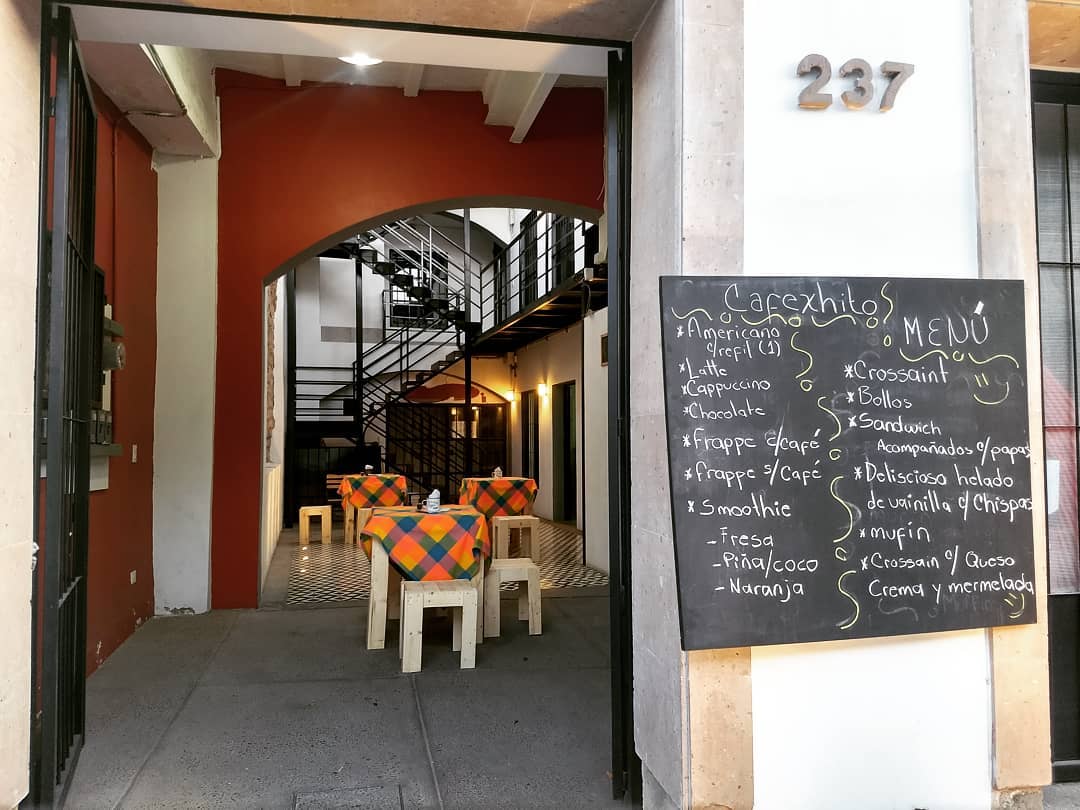 237
Cafexhito
MENÚ
*Americano
c/refil (1)
*Latte
*Cappuccino
*Chocolate
*Frappe c/café
*frappe s/Café
*Smoothie
-Fresa
-Piña/coco
-Naranja
*Crossaint
*Bollos
*Sandwich
Acompañados c/papas
*Deliscioso helado
de vainilla c/Chispas
*mufín
*Crossain c/ Queso
Crema y mermelada